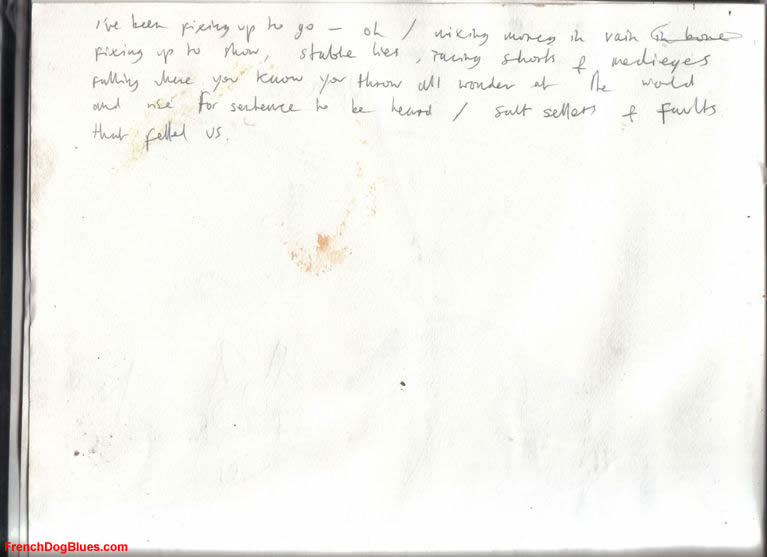 i've been fixing up to go – oh / mixing money in vain
fixing up to show, stable lies, racing shorts & medieyes
falling where you know you throw all wonder at the world
and rise for sentence to be heard / salt sellers & faults
that felled us.
FrenchDogBlues.com